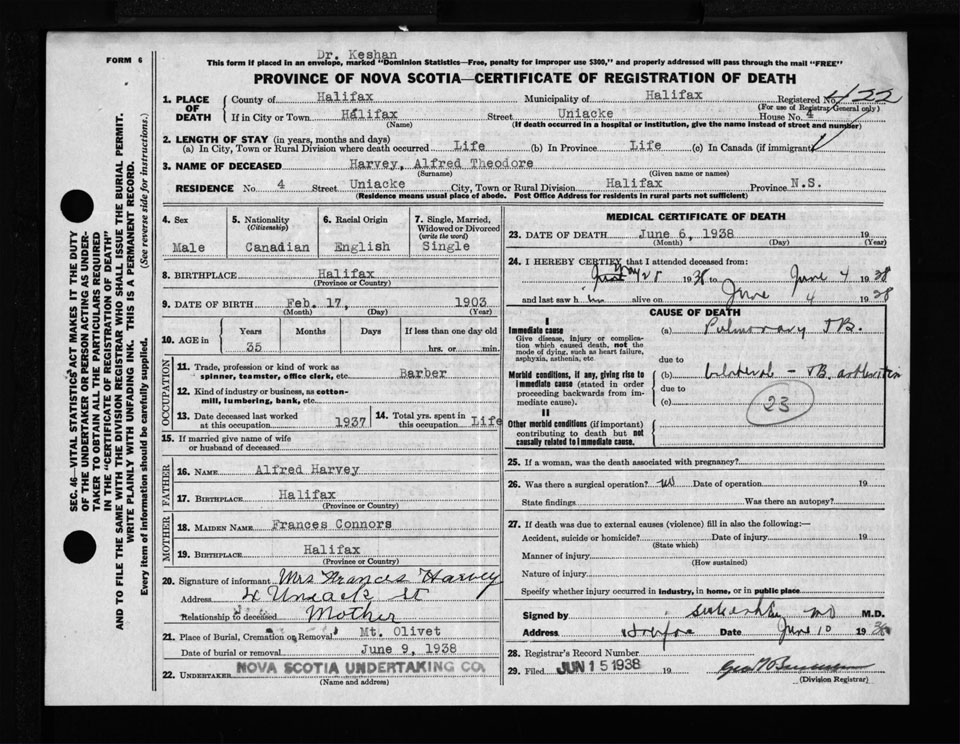 FORM 6
Dr. Keshan
This form if placed in an envelope, marked "Dominion Statistics—Free, penalty for improper use $300," and properly addressed will pass through the mail "FREE"
PROVINCE OF NOVA SCOTIA—CERTIFICATE OF REGISTRATION OF DEATH
SEC. 46—VITAL STATISTICS ACT MAKES IT THE DUTY
OF THE UNDERTAKER OR PERSON ACTING AS UNDER-
TAKER TO OBTAIN ALL THE PARTICULARS REQUIRED
IN THE "CERTIFICATE OF REGISTRATION OF DEATH"
AND TO FILE THE SAME WITH THE DIVISION REGISTRAR WHO SHALL ISSUE THE BURIAL PERMIT.
WRITE PLAINLY WITH UNFADING INK. THIS IS A PERMANENT RECORD.
Every item of information should be carefully supplied. (See reverse side for instructions.)
1. PLACE OF DEATH
County of Halifax Municipality of Halifax Registered No. 422
(For use of Registrar General only)
If in City or Town Halifax Street Uniacke House No. 4
(Name) (If death occurred in a hospital or institution, give the name instead of street and number)
2. LENGTH OF STAY (in years, months and days)
(a) In City, Town or Rural Division where death occurred Life (b) In Province Life (c) In Canada (if immigrant)
3. NAME OF DECEASED Harvey, Alfred Theodore
(Surname) (Given name or names)
RESIDENCE No. 4 Street Uniacke City, Town or Rural Division Halifax Province N.S.
(Residence means usual place of abode. Post Office Address for residents in rural parts not sufficient)
4. Sex
Male
5. Nationality
(Citizenship)
Canadian
6. Racial Origin
English
7. Single, Married,
Widowed or Divorced
(write the word)
Single
8. BIRTHPLACE Halifax
(Province or Country)
9. DATE OF BIRTH Feb. 17, 1903
(Month) (Day) (Year)
10. AGE in
Years Months Days If less than one day old
35 hrs. or min.
OCCUPATION
11. Trade, profession or kind of work as
spinner, teamster, office clerk, etc. Barber
12. Kind of industry or business, as cotton-
mill, lumbering, bank, etc.
13. Date deceased last worked
at this occupation 1937
14. Total yrs. spent in
this occupation Life
15. If married give name of wife
or husband of deceased
FATHER
16. NAME Alfred Harvey
17. BIRTHPLACE Halifax
(Province or Country)
MOTHER
18. MAIDEN NAME Frances Connors
19. BIRTHPLACE Halifax
(Province or Country)
20. Signature of informant Mrs Frances Harvey
Address 4 Uniack St
Relationship to deceased Mother
21. Place of Burial, Cremation or Removal Mt. Olivet
Date of burial or removal June 9, 1938
22. UNDERTAKER NOVA SCOTIA UNDERTAKING CO.
(Name and address)
MEDICAL CERTIFICATE OF DEATH
23. DATE OF DEATH June 6, 1938 19
(Month) (Day) (Year)
24. I HEREBY CERTIFY that I attended deceased from:
May 28 1938 to June 4 1938
and last saw h im alive on June 4 1938
CAUSE OF DEATH
I
Immediate cause
Give disease, injury or complica-
tion which caused death, not the
mode of dying, such as heart failure,
asphyxia, asthenia, etc
(a) Pulmonary TB.
due to
Morbid conditions, if any, giving rise to
immediate cause (stated in order
proceeding backwards from im-
mediate cause).
(b) bilateral — TB.
due to
(c)
23
II
Other morbid conditions (if important)
contributing to death but not
causally related to immediate cause.
25. If a woman, was the death associated with pregnancy?
26. Was there a surgical operation? no Date of operation 19
State findings Was there an autopsy?
27. If death was due to external causes (violence) fill in also the following:—
Accident, suicide or homicide? Date of injury 19
(State which)
Manner of injury
(How sustained)
Nature of injury
Specify whether injury occurred in industry, in home, or in public place
Signed by MD M.D.
Address Halifax Date June 10 1938
28. Registrar's Record Number
29. Filed JUN 15 1938 19
(Division Registrar)